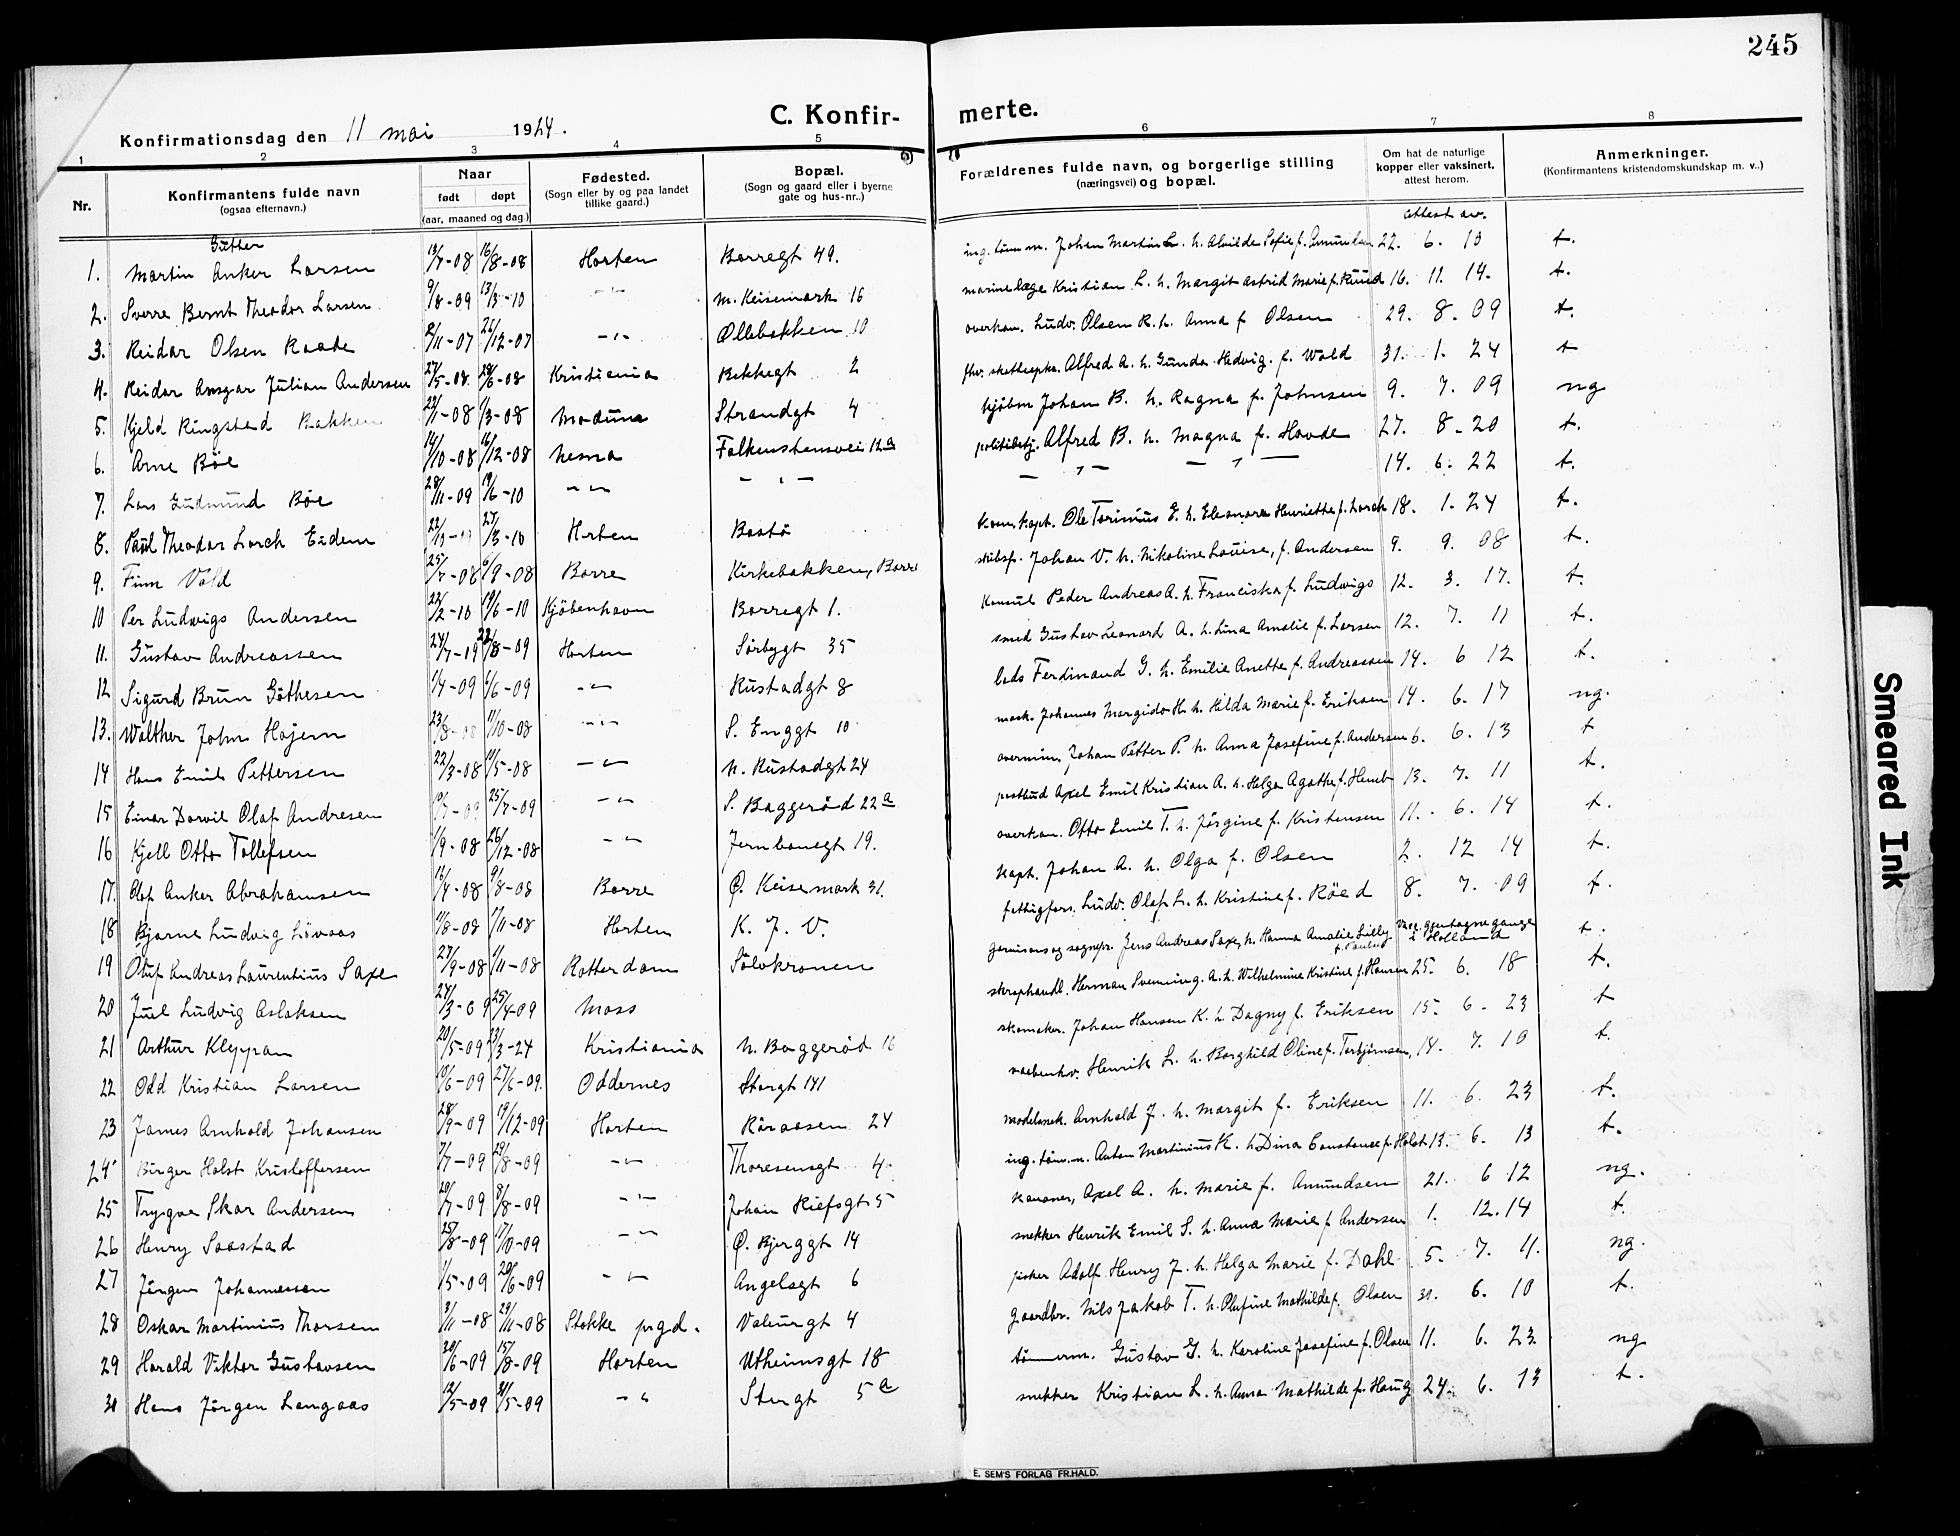 245
C. Konfir-
merte.
Konfirmationsdag den 11 mai 1924.
1 2 3 4 5 6 7 8
Nr.
Konfirmantens fulde navn
(ogsaa efternavn.)
Naar
født døpt
(aar, maaned og dag.)
Fødested.
(Sogn eller by og paa landet
tillike gaard.)
Bopæl.
(Sogn og gaard eller i byerne
gate og hus-nr..)
Forældrenes fulde navn, og borgerlige stilling
(næringsvei) og bopæl.
Om hat de naturlige
kopper eller vaksinert,
attest herom.
Anmerkninger.
(Konfirmantens kristendomskundskap m. v..)
attest av.
Gutter
1. Martin Anker Larsen 13/7-08 16/8-08 Horten Borregt 49. Johan Martin L. h. Alvilde Sofie f. Amundsen 22. 6. 10 t.
2. Sverre Bernt Theodor Larsen 9/8-09 13/3-10 -"- m. Keisemark 16 marinelæge Kristian L. h. Margit Astrid Marie f. Ruud 16. 11. 14. t.
3. Reidar Olsen Raade 8/11-07 26/12-07 -"- Øllebakken 10 overkan. Ludv. Olsen R. h. Anna f Olsen 29. 8. 09 t.
4. Reidar Ansgar Julian Andersen 27/5-08. 28/6-08 Kristiania Bekkegt 2 Alfred A. h. Gunda Hedvig. f. Wold 31. 1. 24 t
5. Kjeld Ringstad Bakken 22/1-08 1/3-08 Modum Strandgt 4 kjøbm Johan B. h. Ragna f. Johnsen 9. 7. 09 ng
6. Arne Bøe 14/10-08 16/12-08 Nesna Falkenstensvei 12a politibetj. Alfred B. h. Magna f. Hovde 27. 8-20 t.
7. Lars Gudmund Bøe 28/11-09 19/6-10 -"- - " - - " - - " - 14. 6. 22 t.
8. Paul Theodor Lorch Eidem 22/10 27/3-10 Horten Bastø kom. kapt. Ole Torinius E. h. Eleonora Henriette f. Lorch 18. 1. 24 t.
9. Finn Vold 25/7-08 6/9-08 Borre Kirkebakken, Borre Johan V. h. Nikoline Louise, f. Andersen 9. 9. 08 t.
10 Per Ludwigs Andersen 22/2-10 19/6-10 Kjøbenhavn Borregt 1. Konsul Peder Andreas A. h. Franciska f. Ludwigs 12. 3. 17. t.
11. Gustav Andreassen 24/7-19 22/8-09 Horten Sørbygt 35 smed Gustav Leonard A. h. Lina Amalie f. Larsen 12. 7. 11 t.
12 Sigurd Brun Gøthesen 1/4-09 6/6-09 -"- Rustadgt 8 Ferdinand G. h. Emilie Anette f. Andreassen 14. 6 12 t.
13. Walther John Hojem 23/8-08 11/10-08 -"- S. Enggt 10 mask. Johannes Margido H. h. Hilda Marie f. Eriksen 14. 6. 17 ng.
14 Hans Emil Pettersen 22/3-08 10/5-08 -"- N. Rustadgt 24 overmin. Johan Petter P. h. Anna Josefine f. Andersen 6. 6. 13 t
15 Einar Olaf Andresen 25/7-09 -"- S. Baggerød 22a postbud Axel Emil Kristian A. h. Helga Agathe f. 13. 7. 11 t.
16 Kjell Otto Tollefsen 1/9-08 26/12-08 -"- Jernbanegt 19. overkan. Otto Emil T. h. Jørgine f. Kristensen 11. 6. 14 t.
17. Olaf Anker Abrahamsen 12/4-08 9/8-08 Borre Ø. Keisemark 31. kapt. Johan A. h. Olga f. Olsen 2. 12 14 t.
18 Bjarne Ludvig Løvaas 11/8-08 1/11-08 Horten K. J. V. Ludv. Olaf L. h. Kristine f. Røed 8. 7. 09 t.
19 Oluf Andreas Laurentius Saxe 27/9-08 1/11-08 Rotterdam Sølvkronen Jens Andreas Saxe, h. Hanna Amalie Lilly Vacc. gjentagne gange i Holland t.
20 Juel Ludvig Aslaksen 24/3-09 25/4-09 Moss skraphandl. Herman Svenning. A. h. Wilhelmine Kristine f. Hansen 25. 6. 18 t.
21 Arthur Kleppan 20/5-09 23/3-24 Kristiania N. Baggerød 16 skomaker. Johan Hansen K. h. Dagny f. Eriksen 15. 6. 23 t
22 Odd Kristian Larsen 10/6-09 27/6-09. Oddernes Storgt 141 Henrik L. h. Borghild Oline f. Torbjørnsen, 14. 7. 10 t.
23 James Arnhold Johansen 28/9-09 19/12-09 Horten Røraasen 24 Arnhold J. h. Margit f. Eriksen 11. 6. 23 t.
24 Birger Holst Kristoffersen 7/7-09 29/8-09 -"- Thoresensgt 4. Anton Martinius K. h Dina Constance f. Holst 13. 6. 13 t.
25 Trygve Skar Andersen 20/7-09 8/8-09 -"- Johan Riefsgt 5 kanoner, Axel A. h. Marie f. Amundsen 21. 6 12 ng.
26 Henry Saastad 25/8-09 17/10-09 -"- Ø. Bjerggt 14 snekker Henrik Emil S. h. Anna Marie f Andersen 1. 12. 14 t.
27 Jørgen Johannessen 1/5-09 20/6-09 -"- Angelsgt 6 fisker Adolf Henry J. h. Helga Marie f. Dahl 5. 7. 11. ng.
28 Oskar Martinius Thorsen 3/11-08 29/11-08 Stokke prgd. Valeurgt 4 gaardbr. Nils Jakob T. h. Olufine Mathilde f. Olsen 31. 6. 10 t.
29 Harald Viktor Gustavsen 20/6-09 15/8-09 Horten Utheimsgt 18 tømmerm. Gustav G. h. Karoline Josefine f. Olsen 11. 6. 23 ng
30 Hans Jørgen Langaas 12/5-09 31/5-09 -"- Storgt 5a snekker Kristian L. h. Anna Mathilde f. Haug 24. 6. 13 t.
E. SEM'S FORLAG FR.HALD.
Smeared Ink